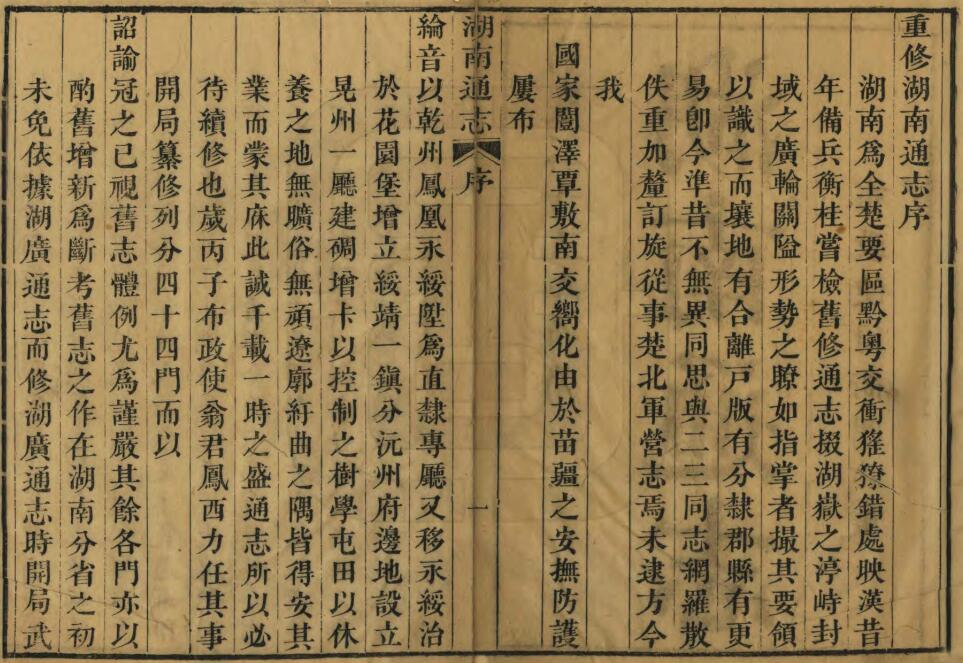 重修湖南通志序
湖南為全楚要區黔粤交衝猺獠錯處映漢昔
年備兵衡桂嘗檢舊修通志掇湖嶽之渟峙封
域之廣輪關隘形勢之瞭如指掌者撮其要領
以識之而壤地有合離戸版有分隸郡縣有更
易卽今準昔不無異同思與二三同志網羅散
佚重加釐訂旋從事楚北軍營志焉未逮方今
我
國家闓澤覃敷南交嚮化由於苗疆之安撫防護
屢布
湖南通志 序 一
綸音以乾州鳳凰永綏陞為直隸專廳又移永綏治
於花園堡增立綏靖一鎮分沅州府邊地設立
晃州一廳建碉增卡以控制之樹學屯田以休
養之地無曠俗無頑遼廓紆曲之隅皆得安其
業而蒙其庥此誠千載一時之盛通志所以必
待續修也歲丙子布政使翁君鳳西力任其事
開局纂修列分四十四門而以
詔諭冠之已視舊志體例尤為謹嚴其餘各門亦以
酌舊增新為斷考舊志之作在湖南分省之初
未免依據湖廣通志而修湖廣通志時開局武